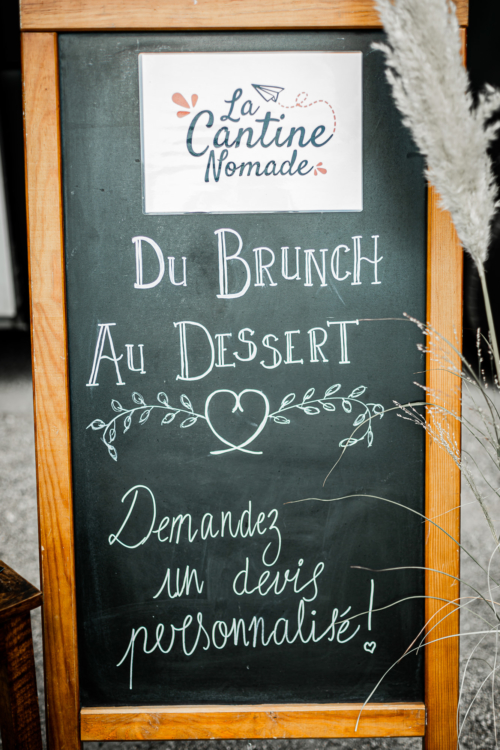 La
Cantine
Nomade
Du Brunch
Au Dessert
Demandez
un devis
personnalisé!